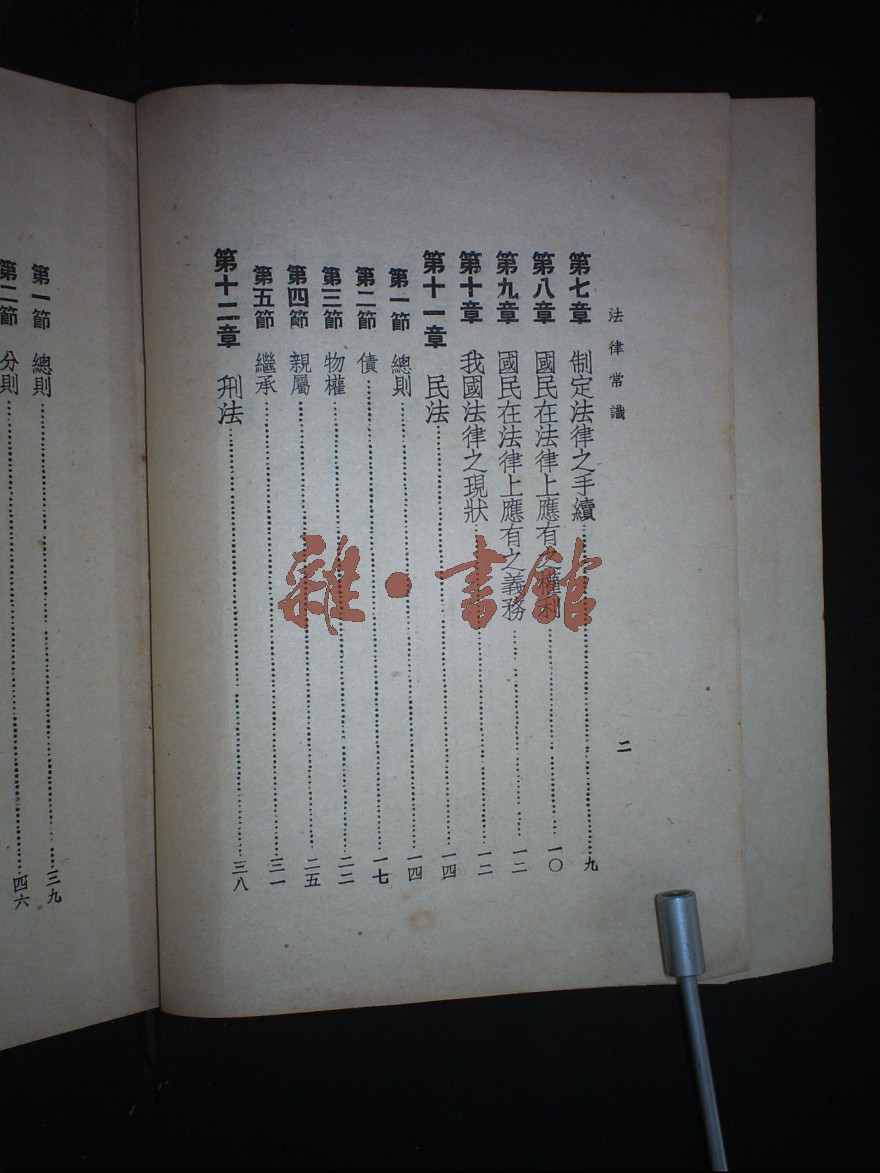 法律常識
二
第七章 制定法律之手續…………九
第八章 國民在法律上應有之權利…………一〇
第九章 國民在法律上應有之義務…………一二
第十章 我國法律之現狀…………一二
第十一章 民法…………一四
第一節 總則…………一四
第二節 債…………一七
第三節 物權…………二二
第四節 親屬…………二五
第五節 繼承…………三一
第十二章 刑法…………三八
第一節 總則…………三九
第二節 分則…………四六
雜·書館